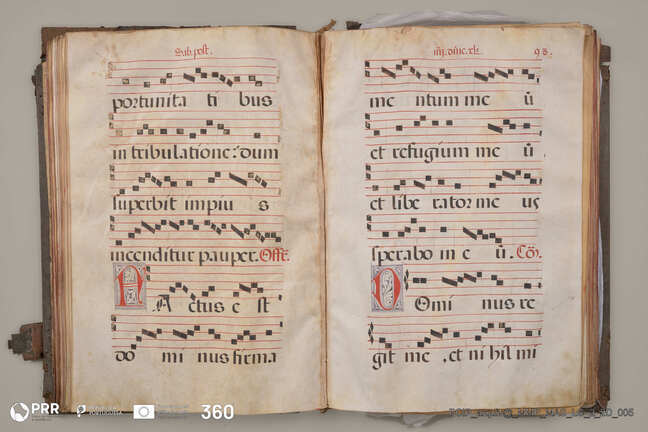 Sub. post.
portunita ti bus
in tribulatione: dum
superbit impiu s
incenditur pauper. Off.
F A ctus e st
do mi nus firma
98.
me ntum me ū
et refugium me ū.
et libe rator me us
sperabo in e ū. Cō.
D Omi nus re
git me, et ni hil mi
PRR
360